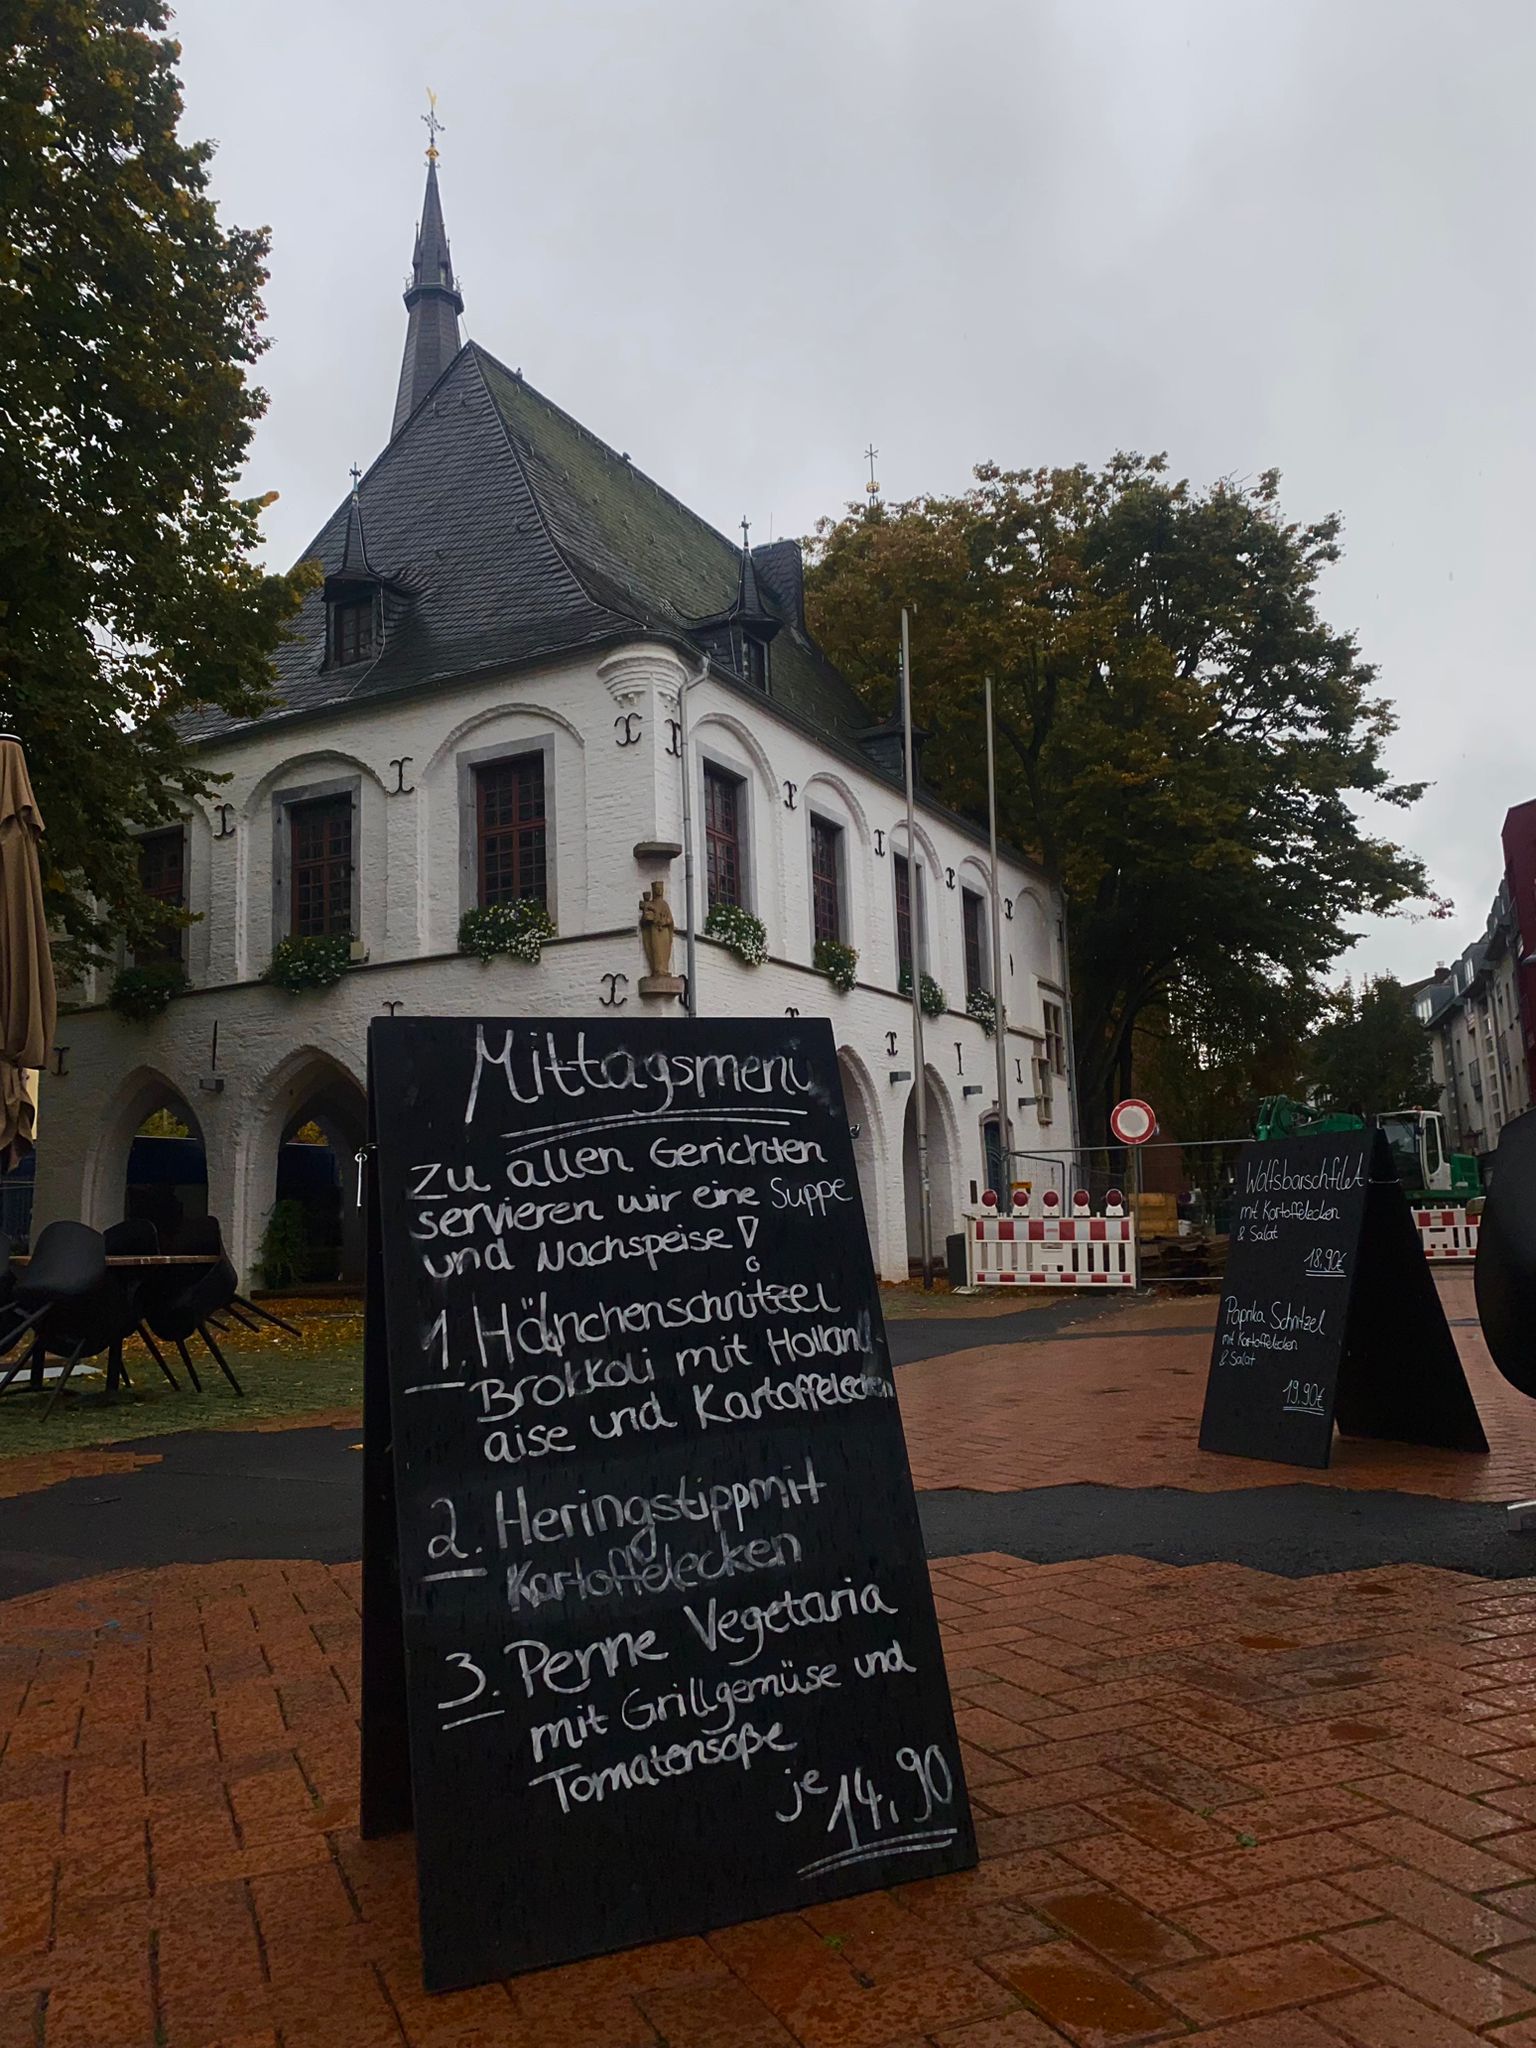 Mittagsmenü
Zu allen Gerichten
servieren wir eine Suppe
und Nachspeise!
1. Hähnchenschnitzel
Brokkoli mit Holland
aise und Kartoffelecken
2. Heringstipp mit
Kartoffelecken
3. Penne Vegetaria
mit Grillgemüse und
Tomatensoße
je 14,90
Wolfsbarschfilet
mit Kartoffelecken
& Salat
18,90€
Paprika Schnitzel
mit Kartoffelecken
& Salat
19,90€